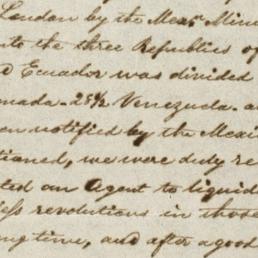 London by the Mexn Minis
nto the three Republics of
d Ecuador was divided
anada - 28½ Venezuela - a
en notified by the Mexi
tioned, we were duly re
ted an Agent to liquid
less revolutions in those
ng time, and after a good